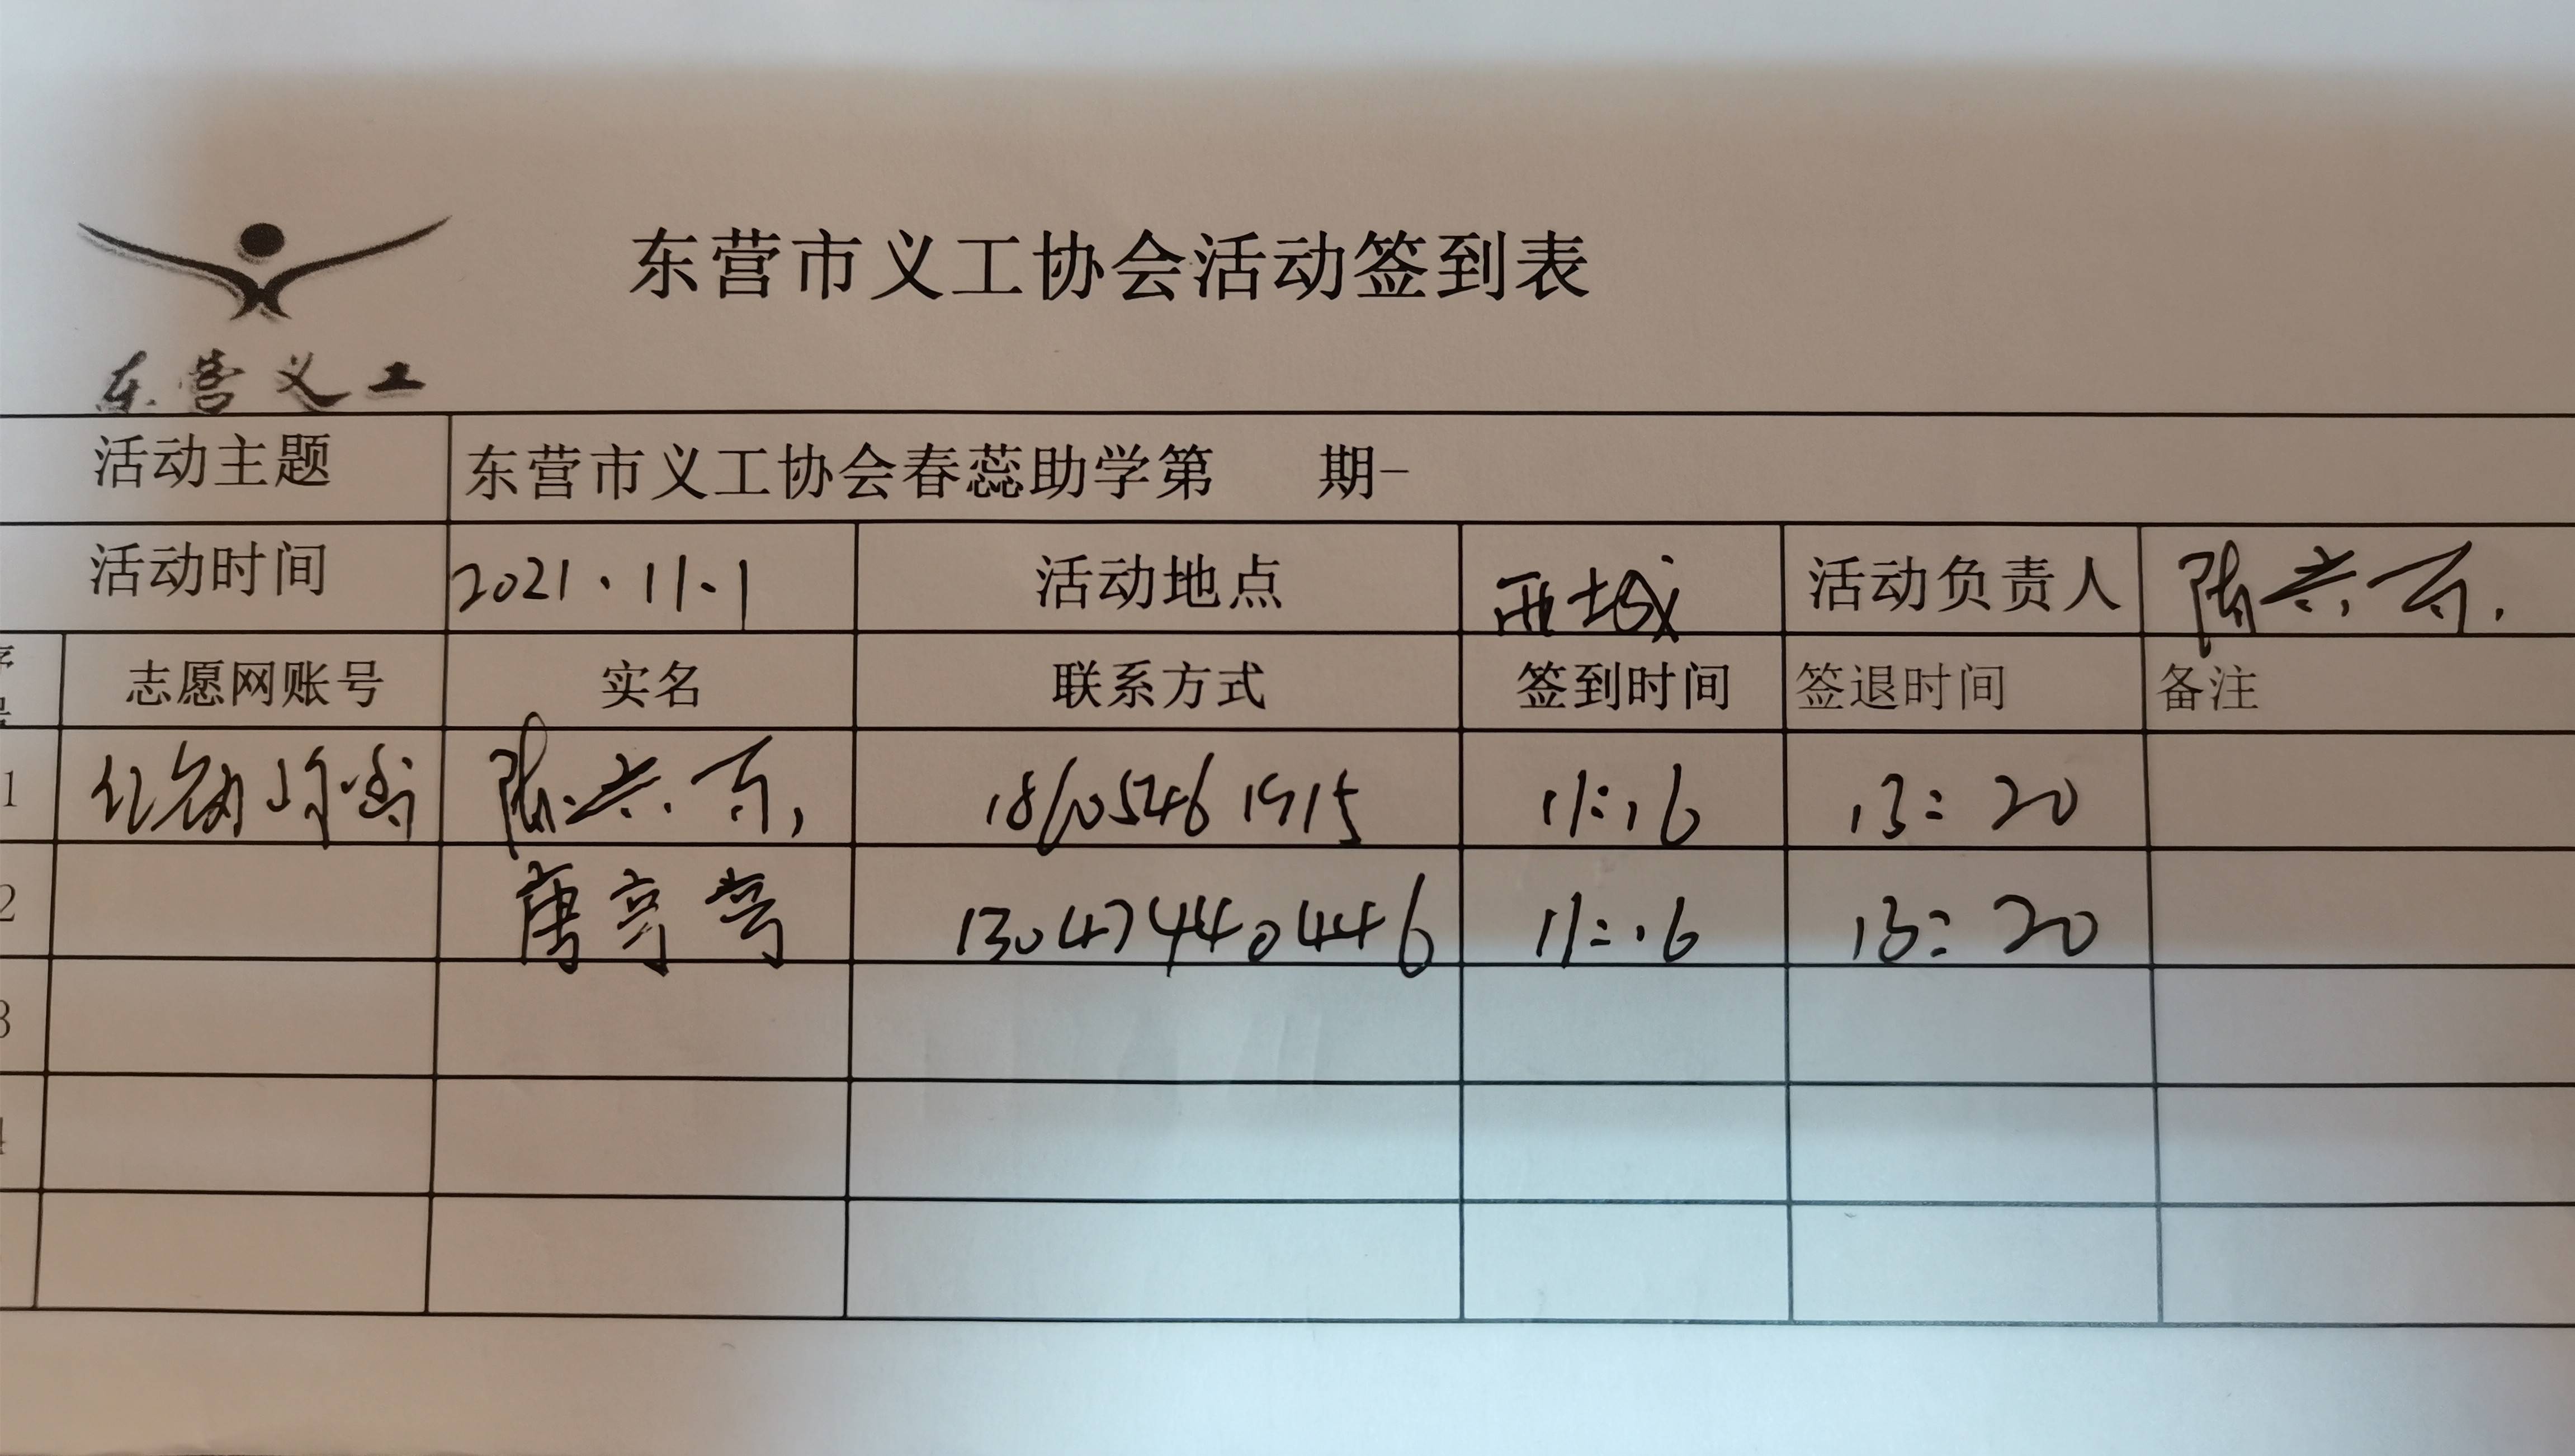 东营市义工协会活动签到表
东营义工
活动主题 东营市义工协会春蕊助学第 期-
活动时间 2021.11.1 活动地点 西城 活动负责人
序号 志愿网账号 实名 联系方式 签到时间 签退时间 备注
1 18605461915 11:16 13:20
2 唐亭亭 13047440446 11:16 13:20
3
4